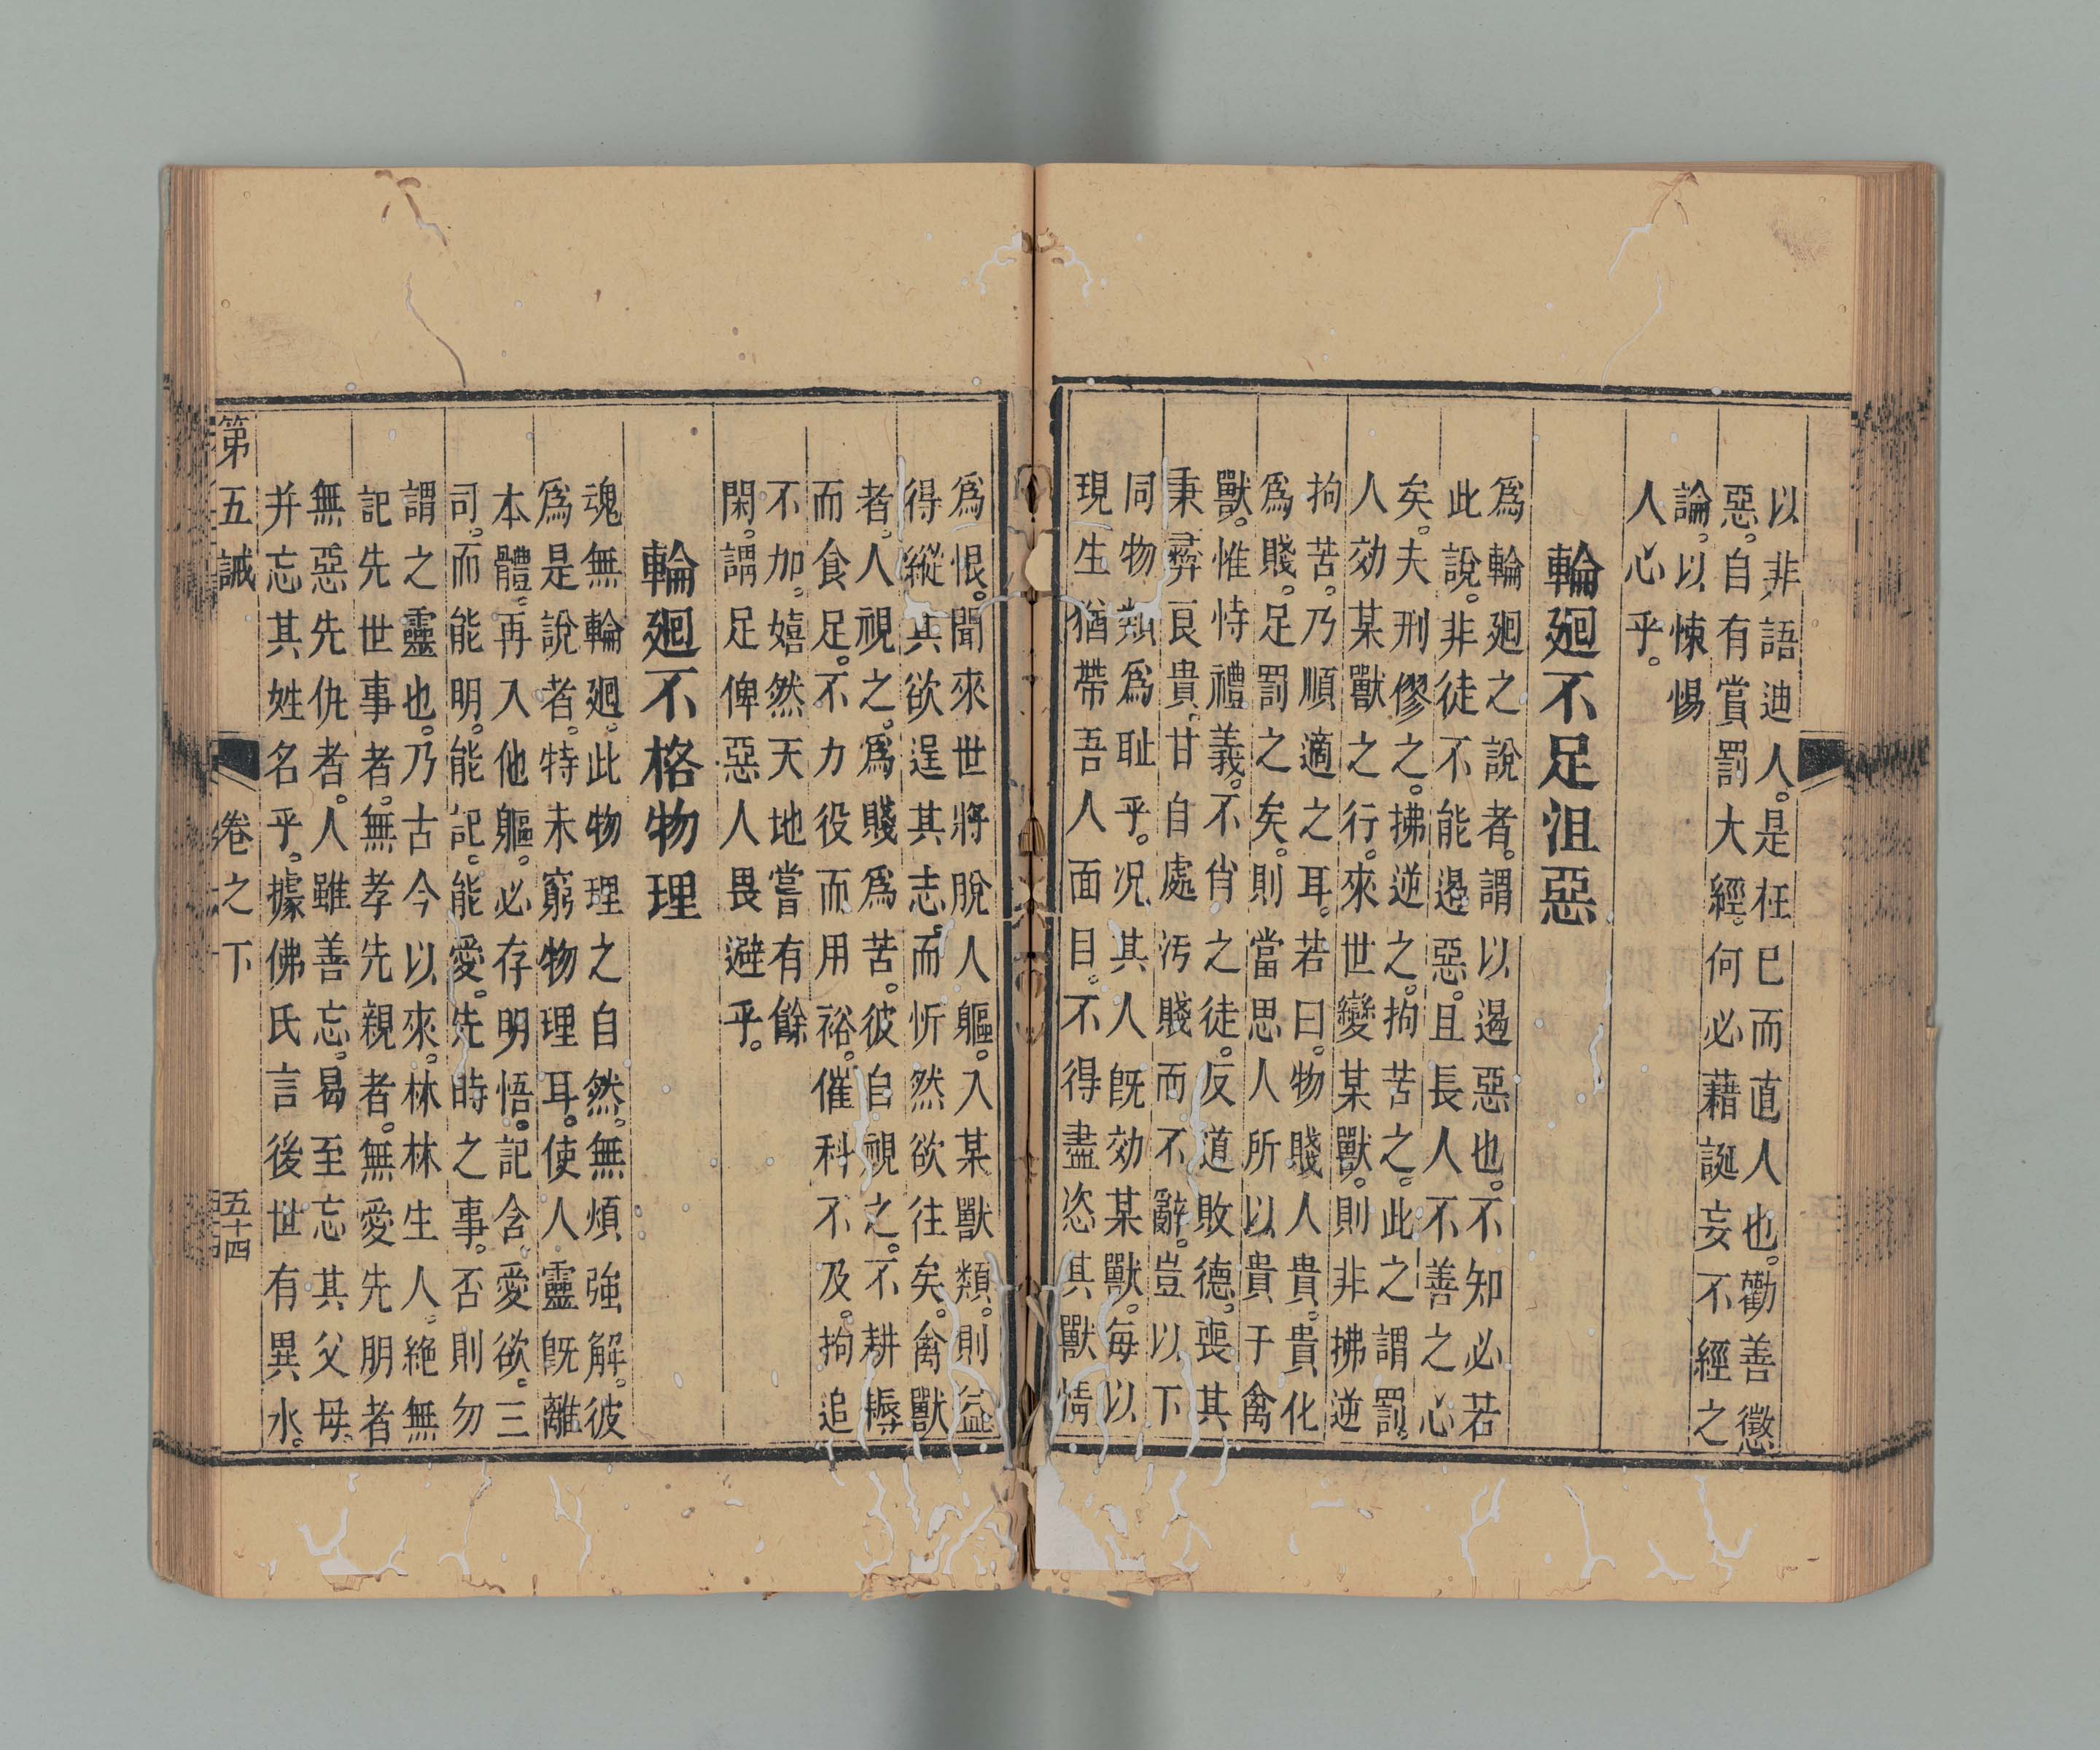 以非語迪人。是枉已而直人也。勸善懲
惡。自有賞罰大經。何必藉誕妄不經之
論。以悚惕
人心乎。
輪廻不足沮惡
爲輪廻之說者。謂以遏惡也。不知必若
此說。非徒不能遏惡。且長人不善之心
矣。夫刑僇之。拂逆之。拘苦之。此之謂罰。
人効某獸之行。來世變某獸。則非拂逆
拘苦。乃順適之耳。若曰。物賤人貴。貴化
爲賤。足罰之矣。則當思人所以貴于禽
獸。惟恃禮義。不肖之徒。反道敗德。喪其
秉彛良貴。甘自處汚賤而不辭。豈以下
同物類爲耻乎。况其人旣効某獸。每以
現生猶帶吾人面目。不得盡恣其獸情
爲恨。聞來世將脫人軀。入某獸類。則益
得縱其欲逞其志。而忻然欲往矣。禽獸
者。人視之。爲賤爲苦。彼自視之。不耕耨
而食足。不力役而用裕。催科不及。拘追
不加。嬉然天地嘗有餘
閑。謂足俾惡人畏避乎。
輪廻不格物理
魂無輪廻。此物理之自然。無煩強解。彼
爲是說者。特未窮物理耳。使人靈旣離
本體。再入他軀。必存明悟。記含愛欲。三
司。而能明。能記。能愛。先時之事。否則勿
謂之靈也。乃古今以來。林林生人。絕無
記先世事者。無孝先親者。無愛先朋者
無惡先仇者。人雖善忘。曷至忘其父母。
并忘其姓名乎。據佛氏言後世有異水。
第五誡 卷之下 五十四